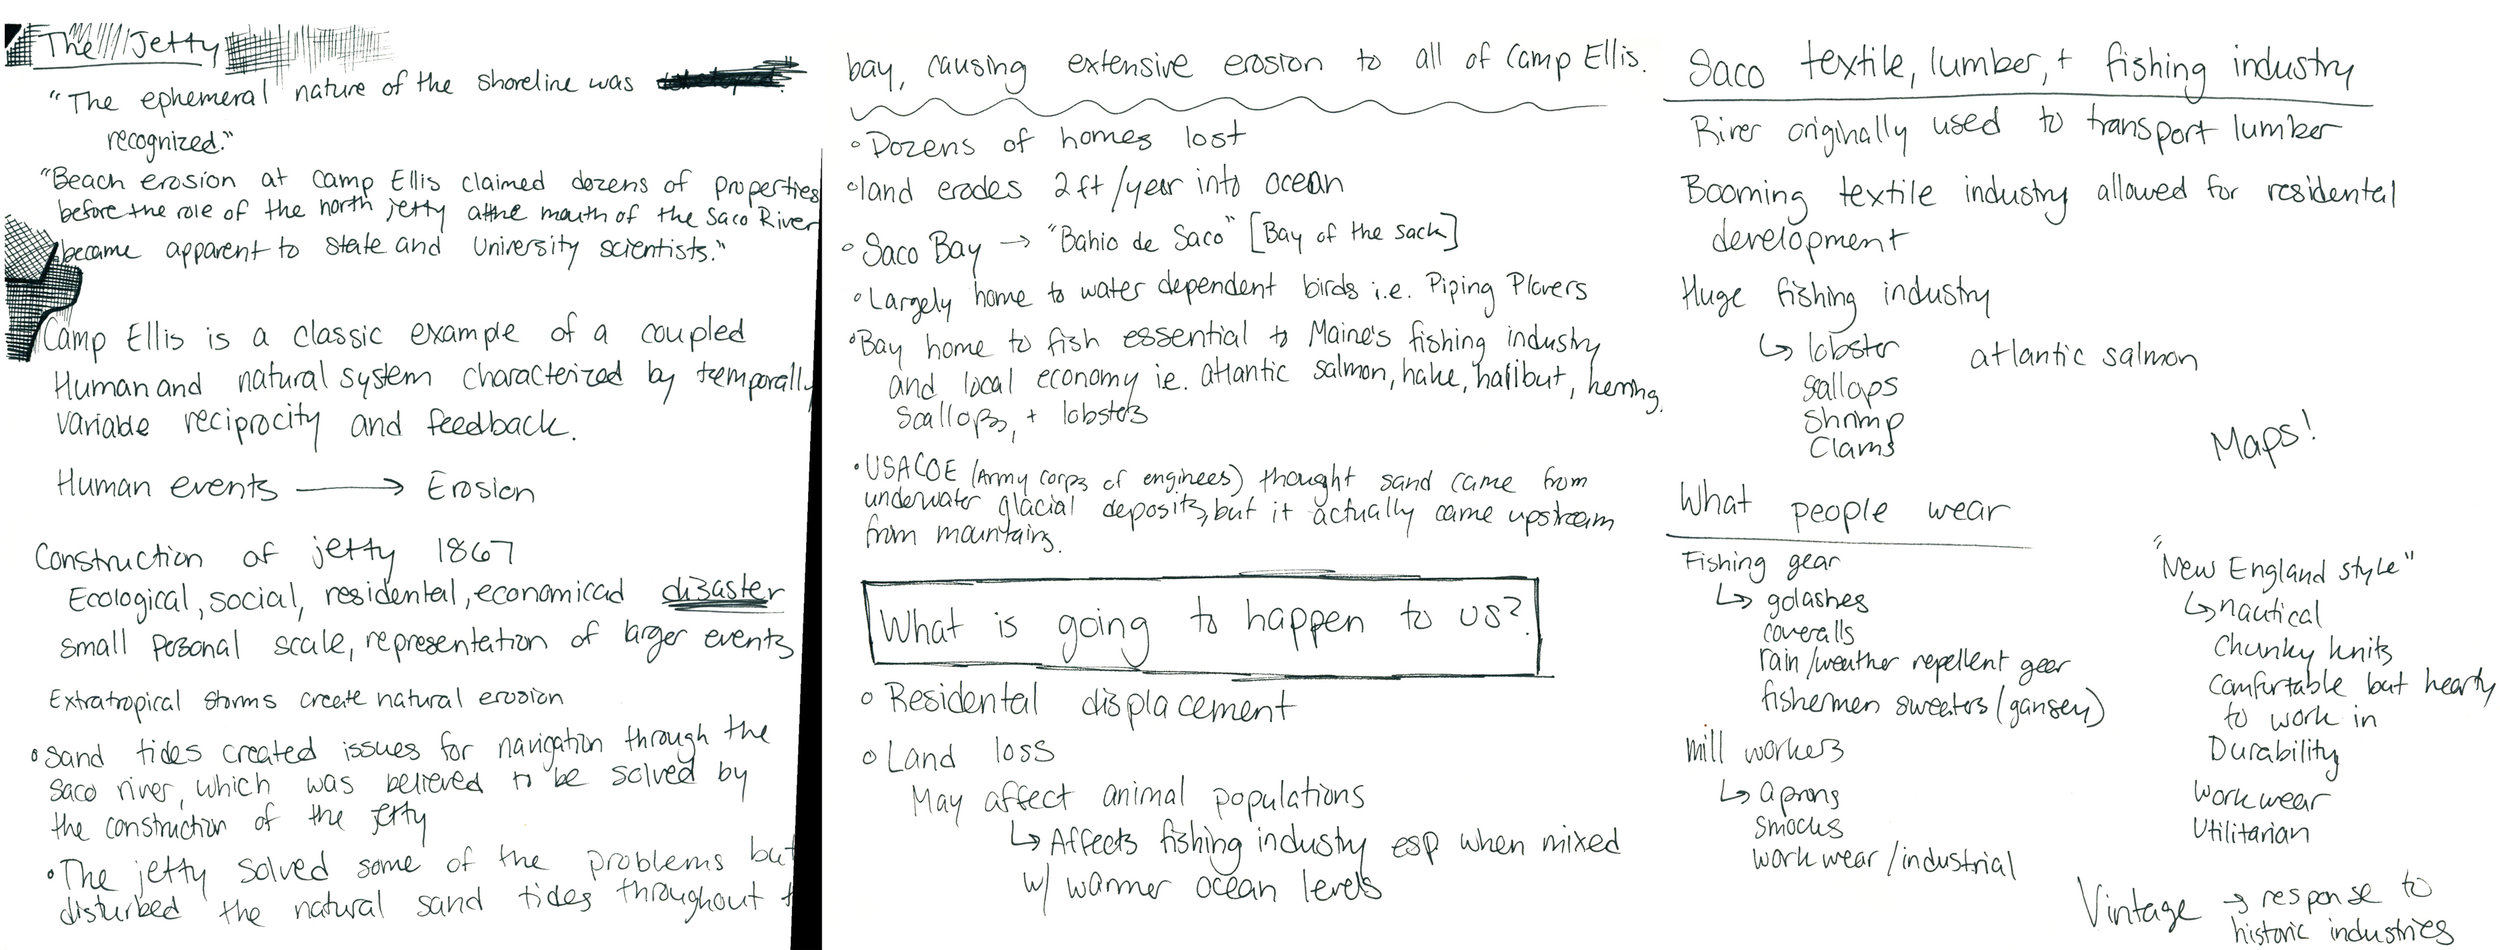 The Jetty
"The ephemeral nature of the shoreline was
recognized."
"Beach erosion at Camp Ellis claimed dozens of properties
before the role of the north jetty at the mouth of the Saco River
became apparent to State and University scientists."
Camp Ellis is a classic example of a coupled
Human and natural system characterized by temporally
variable reciprocity and feedback.
Human events → Erosion
Construction of jetty 1867
Ecological, social, residental, economicad disaster
small personal scale, representation of larger events
Extratropical storms create natural erosion
• Sand tides created issues for navigation through the
Saco river, which was believed to be solved by
the construction of the jetty
• The jetty solved some of the problems but
disturbed the natural sand tides throughout t
bay, causing extensive erosion to all of Camp Ellis.
• Dozens of homes lost
• land erodes 2ft/year into ocean
• Saco Bay → "Bahio de Saco" [Bay of the sack]
• Largely home to water dependent birds i.e. Piping Plovers
• Bay home to fish essential to Maine's fishing industry
and local economy ie. atlantic salmon, hake, halibut, herring,
scallops, + lobsters
• USACOE (Army corps of enginees) thought sand came from
underwater glacial deposits, but it actually came upstream
from mountains.
What is going to happen to us?
• Residental displacement
• Land loss
May affect animal populations
↳ Affects fishing industry esp when mixed
w/ warmer ocean levels
Saco textile, lumber, + fishing industry
River originally used to transport lumber
Booming textile industry allowed for residental
development
Huge fishing industry
↳ lobster atlantic salmon
scallops
shrimp
Clams
Maps!
What people wear
Fishing gear
↳ golashes
coveralls
rain/weather repellent gear
fishermen sweaters (gansey)
mill workers
↳ aprons
smocks
workwear/industrial
"New England style"
↳ nautical
Chunky knits
comfurtable but hearty
to work in
Durability
workwear
Utilitarian
Vintage → response to
historic industries